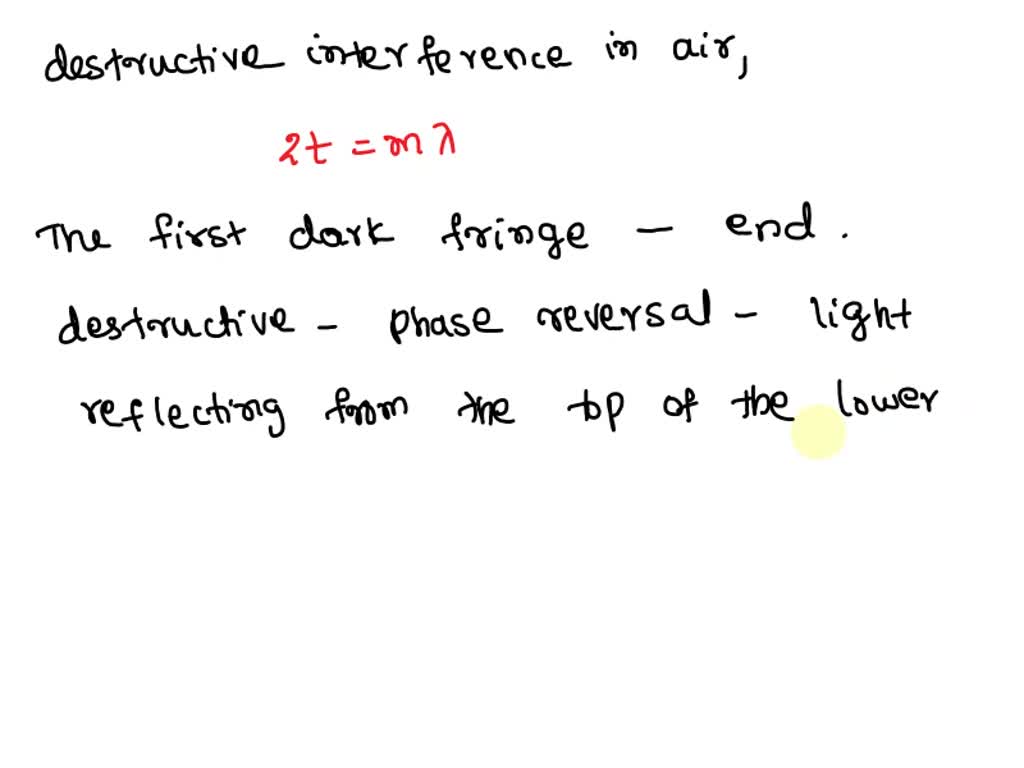 destructive interference in air,
2t = mλ
The first dark fringe – end.
destructive – phase reversal – light
reflecting from the top of the lower